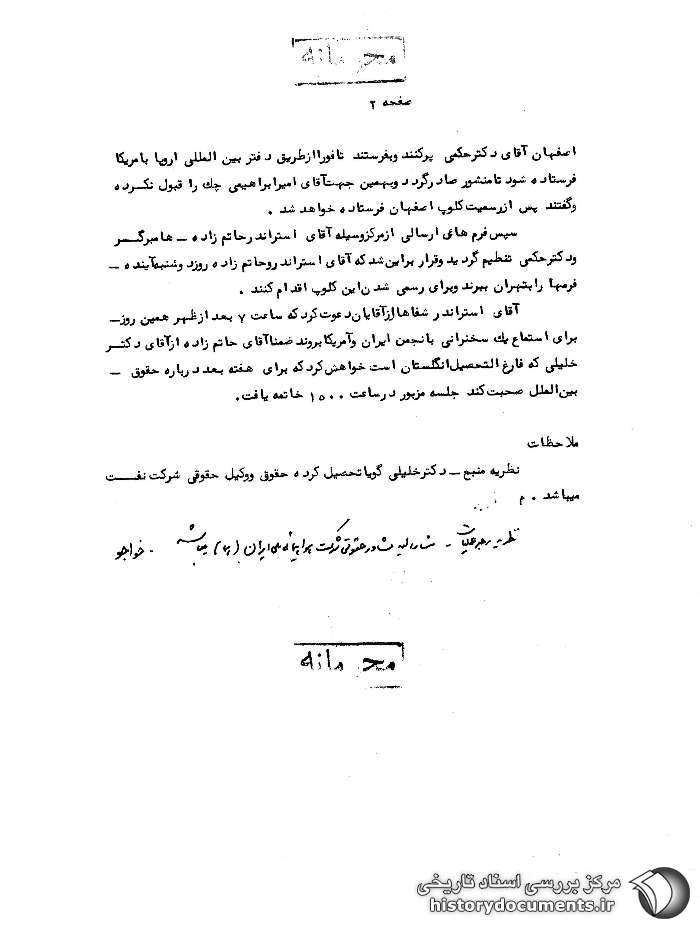 محرمانه
صفحه ۲
اصفهان آقای دکتر حکمی پرکنند وبفرستند تا فورا از طریق دفتر بین المللی اروپا بامریکا
فرستاده شود تا منشور صادر گردد وبهمین جهت آقای امیرابراهیمی چك را قبول نکرده
وگفتند پس از رسمیت کلوپ اصفهان فرستاده خواهد شد .
سپس فرم های ارسالی از مرکز وسیله آقای استراندر حاتم زاده ــ هامبرگر
ودکترحکمی تنظیم گردید وقرار براین شد که آقای استراندر وحاتم زاده روز دوشنبه آینده ــ
فرمها را بتهران ببرند وبرای رسمی شدن این کلوپ اقدام کنند .
آقای استراندر شفاها از آقایان دعوت کرد که ساعت ۷ بعد از ظهر همین روز ــ
برای استماع یك سخنرانی بانجمن ایران وآمریکا بروند ضمنا آقای حاتم زاده از آقای دکتر
خلیلی که فارغ التحصیل انگلستان است خواهش کرد که برای هفته بعد درباره حقوق ــ
بین الملل صحبت کند جلسه مزبور در ساعت ۱۵۰۰ خاتمه یافت.
ملاحظات
نظریه منبع ــ دکتر خلیلی گویا تحصیل کرده حقوق ووکیل حقوقی شرکت نفت
میباشد . م
نظریه رهبر عملیات - مشارالیه مشاور حقوقی شرکت هواپیمائی ملی ایران (هما) میباشد . خواجو
محرمانه
مرکز بررسی اسناد تاریخی
historydocuments.ir